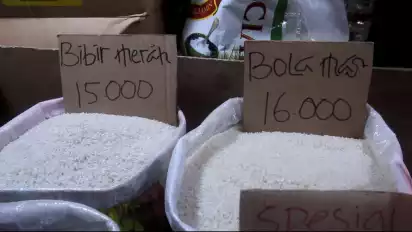 Bibir Merah
15000
Bola Mas
16.000
Spesial